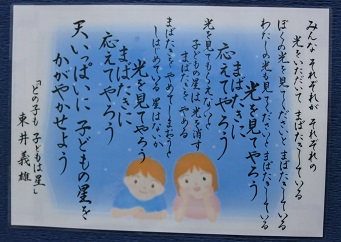 みんな それぞれが それぞれの
光をいただいて まばたきしている
ぼくの光を見てくださいと まばたきしている
わたしの光も見てくださいと まばたきしている
光を見てやろう
まばたきに
応えてやろう
光を見てもらえないと
子どもの星は 光を消す
まばたきを やめてしまおうと
しはじめてる 星はないか
光を見てやろう
まばたきに
応えてやろう
天いっぱいに 子どもの星を
かがやかせよう
『どの子も 子どもは星』
東井義雄